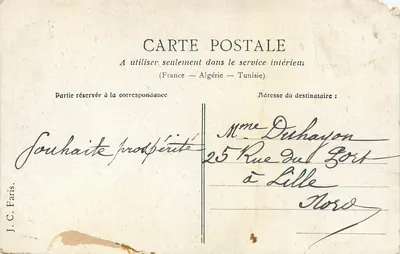 CARTE POSTALE
A utiliser seulement dans le service intérieur
(France — Algérie — Tunisie)
Partie réservée à la correspondance
Adresse du destinataire :
Souhaite prospérité
Mme Duhayon
25 Rue du Port
à Lille
Nord
J. C. Paris.